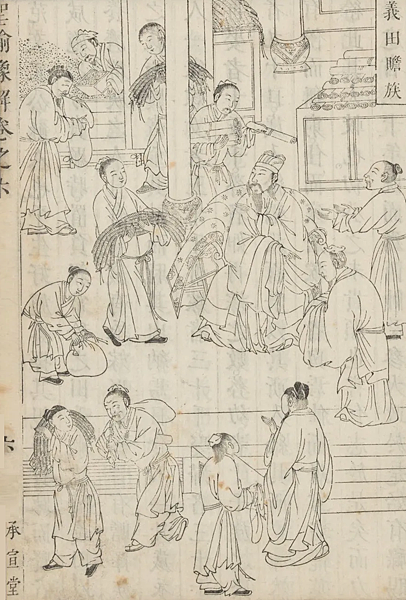 義田贍族
聖諭像解卷之六
六
承宣堂